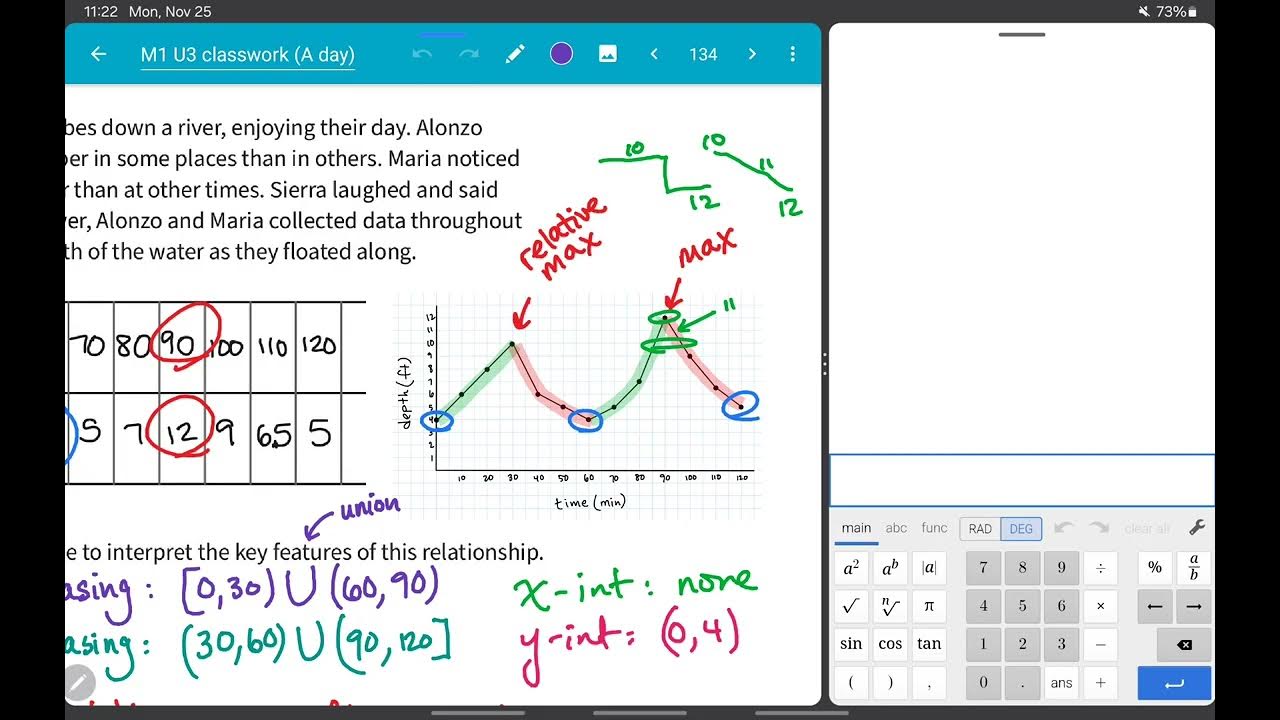 11:22 Mon, Nov 25
73%
M1 U3 classwork (A day)
134
bes down a river, enjoying their day. Alonzo
per in some places than in others. Maria noticed
r than at other times. Sierra laughed and said
ver, Alonzo and Maria collected data throughout
th of the water as they floated along.
10
12
10
11
12
relative
max
max
11
70 80 90 100 110 120
5 7 12 9 6.5 5
depth (ft)
12
11
10
9
8
7
6
5
4
3
2
1
10 20 30 40 50 60 70 80 90 100 110 120
time (min)
union
e to interpret the key features of this relationship.
asing: [0,30) U (60,90)
x-int: none
asing: (30,60) U (90,120]
y-int: (0,4)
main abc func RAD DEG clear all
a² aᵇ |a| 7 8 9 ÷ % a/b
√ ⁿ√ π 4 5 6 × ← →
sin cos tan 1 2 3 −
( ) , 0 . ans +